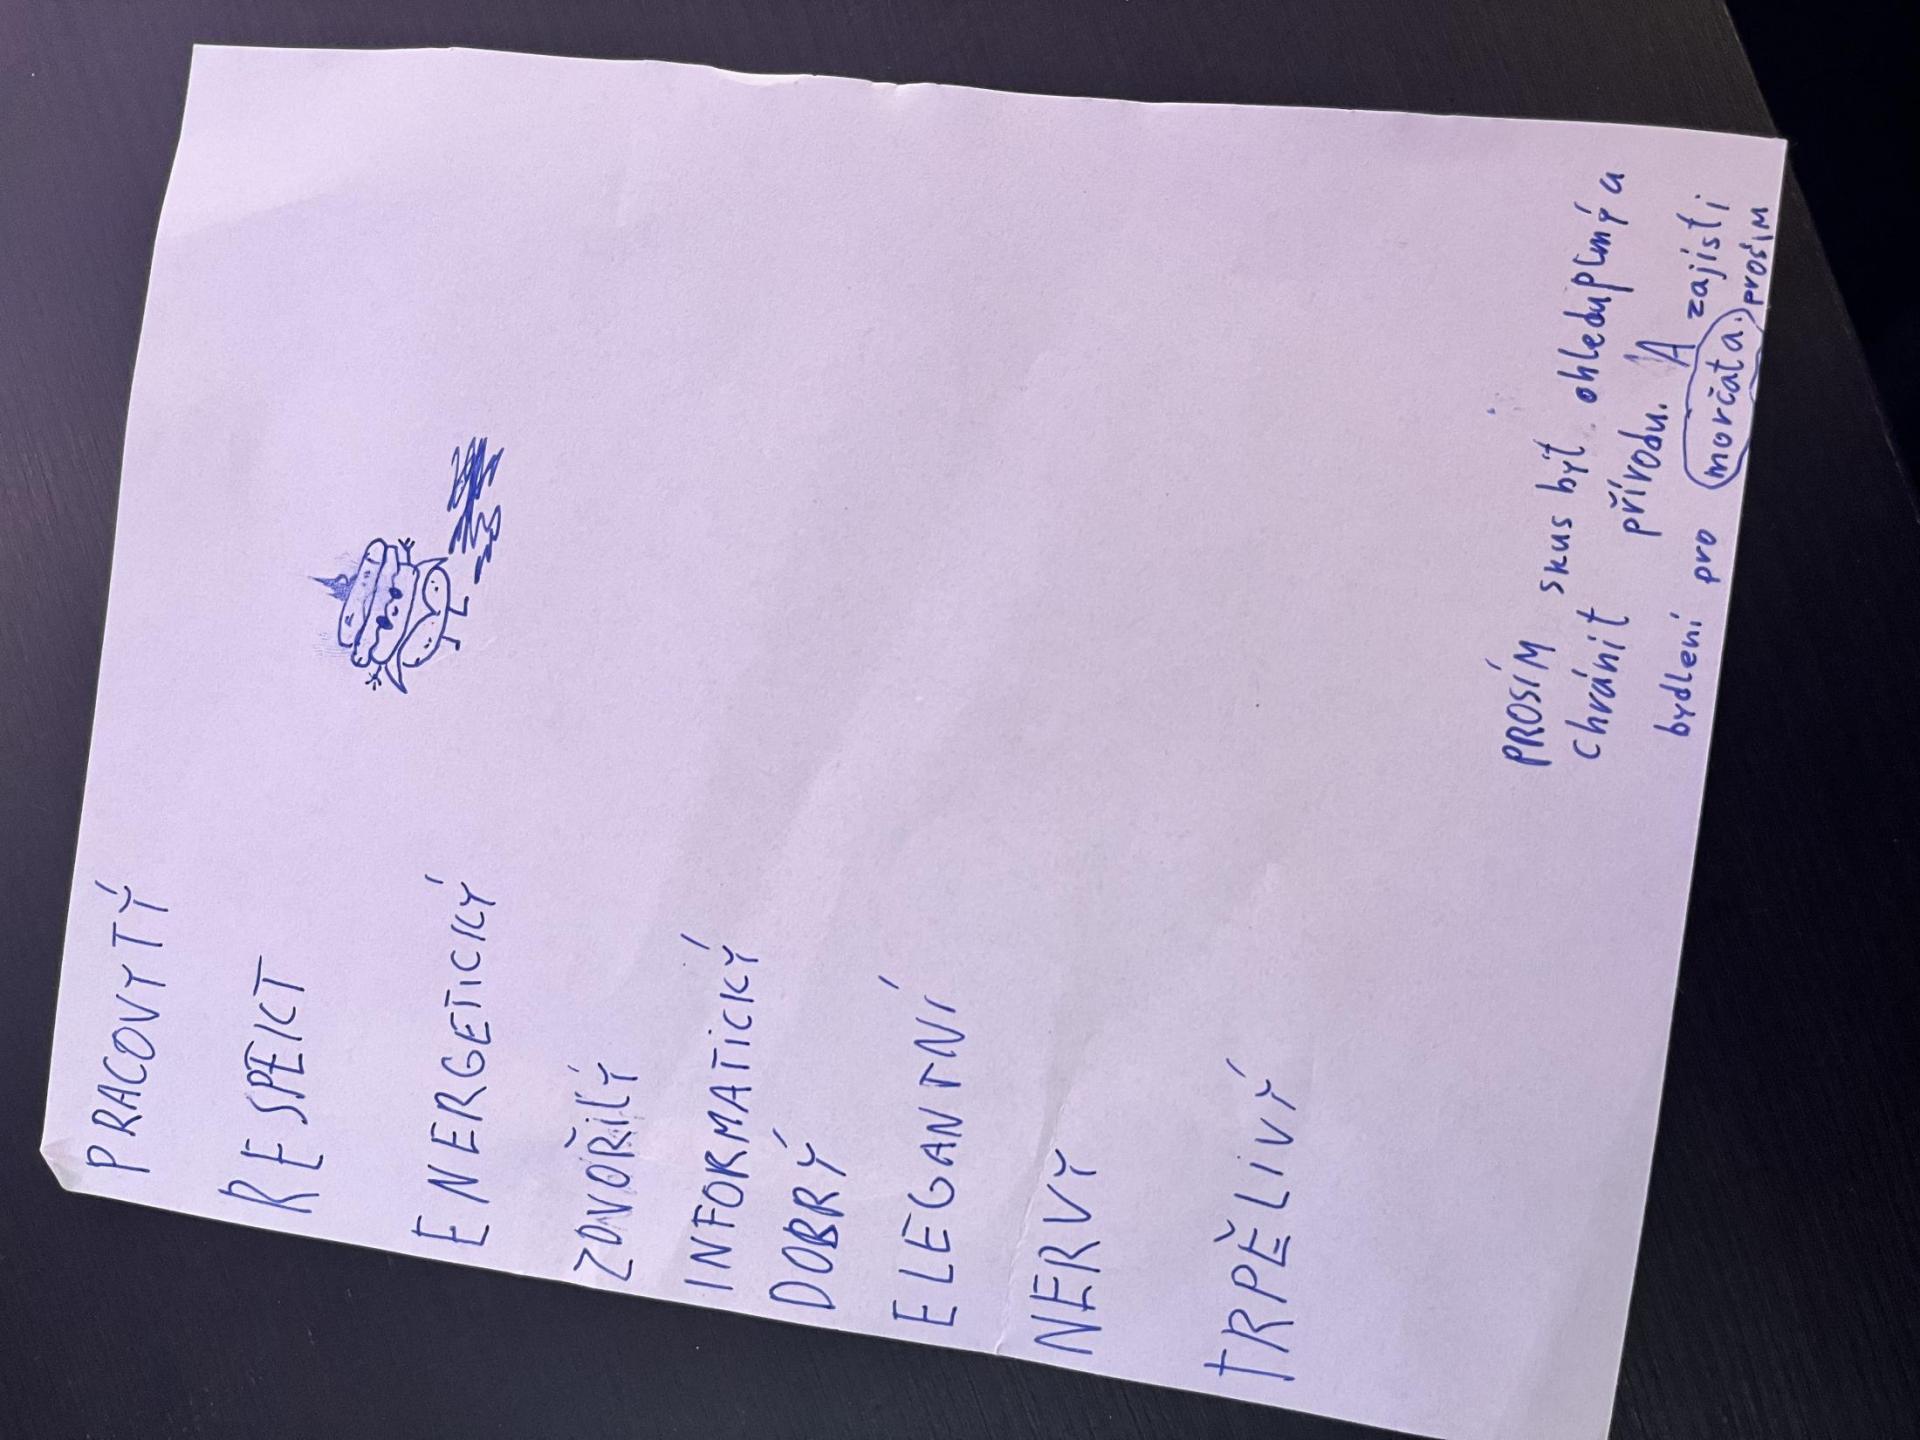 PRACOVYTÝ
RESPEKT
ENERGETICKÝ
ZDVOŘILÝ
INFORMATICKÝ
DOBRÝ
ELEGANTNÍ
NERVY
TRPĚLIVÝ
PROSÍM skus být ohleduplný a
chránit přírodu. A zajisti
bydlení pro morčata. prosím